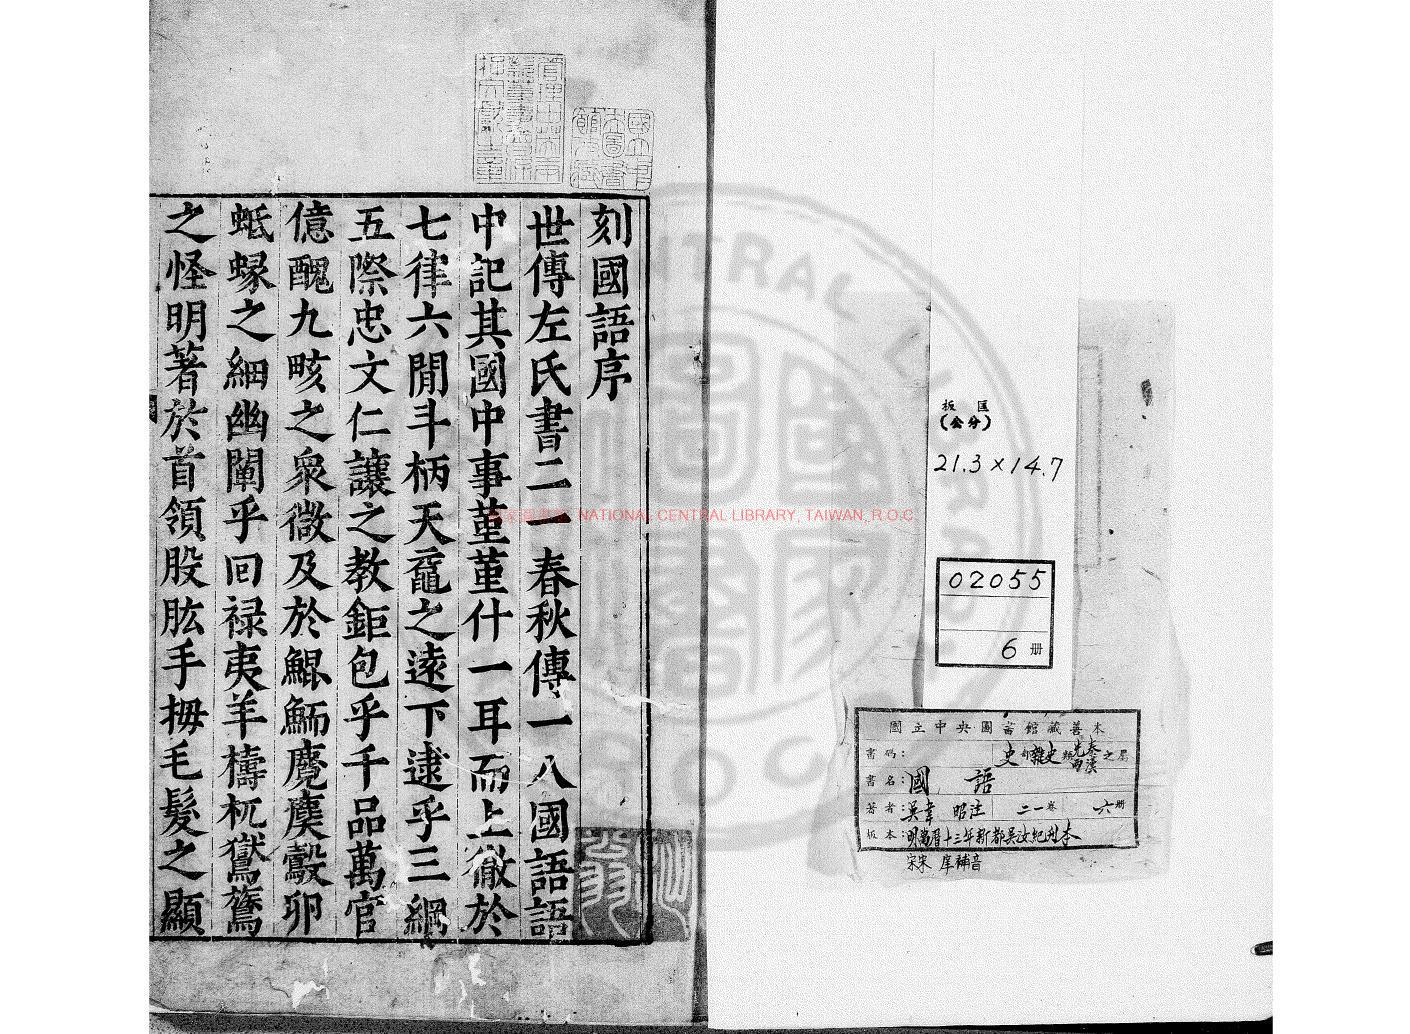 刻國語序
世傳左氏書二一春秋傳一八國語語
中記其國中事堇堇什一耳而上徹於
七律六閒斗柄天黿之遠下逮乎三綱
五際忠文仁讓之教鉅包乎千品萬官
億醜九畡之衆微及於鯤鮞麑麌鷇卵
蚳蝝之細幽闡乎回祿夷羊檮杌鸑鷟
之怪明著於首領股肱手拇毛髮之顯
NATIONAL CENTRAL LIBRARY, TAIWAN, R.O.C
板匡
(公分)
21.3×14.7
02055
6 册
國立中央圖書館藏善本
書碼: 史部雜史類先秦兩漢之屬
書名: 國語
著者: 吳韋昭注 二一卷 六册
板本: 明萬曆十三年新都吳汝紀刊本
宋宋庠補音